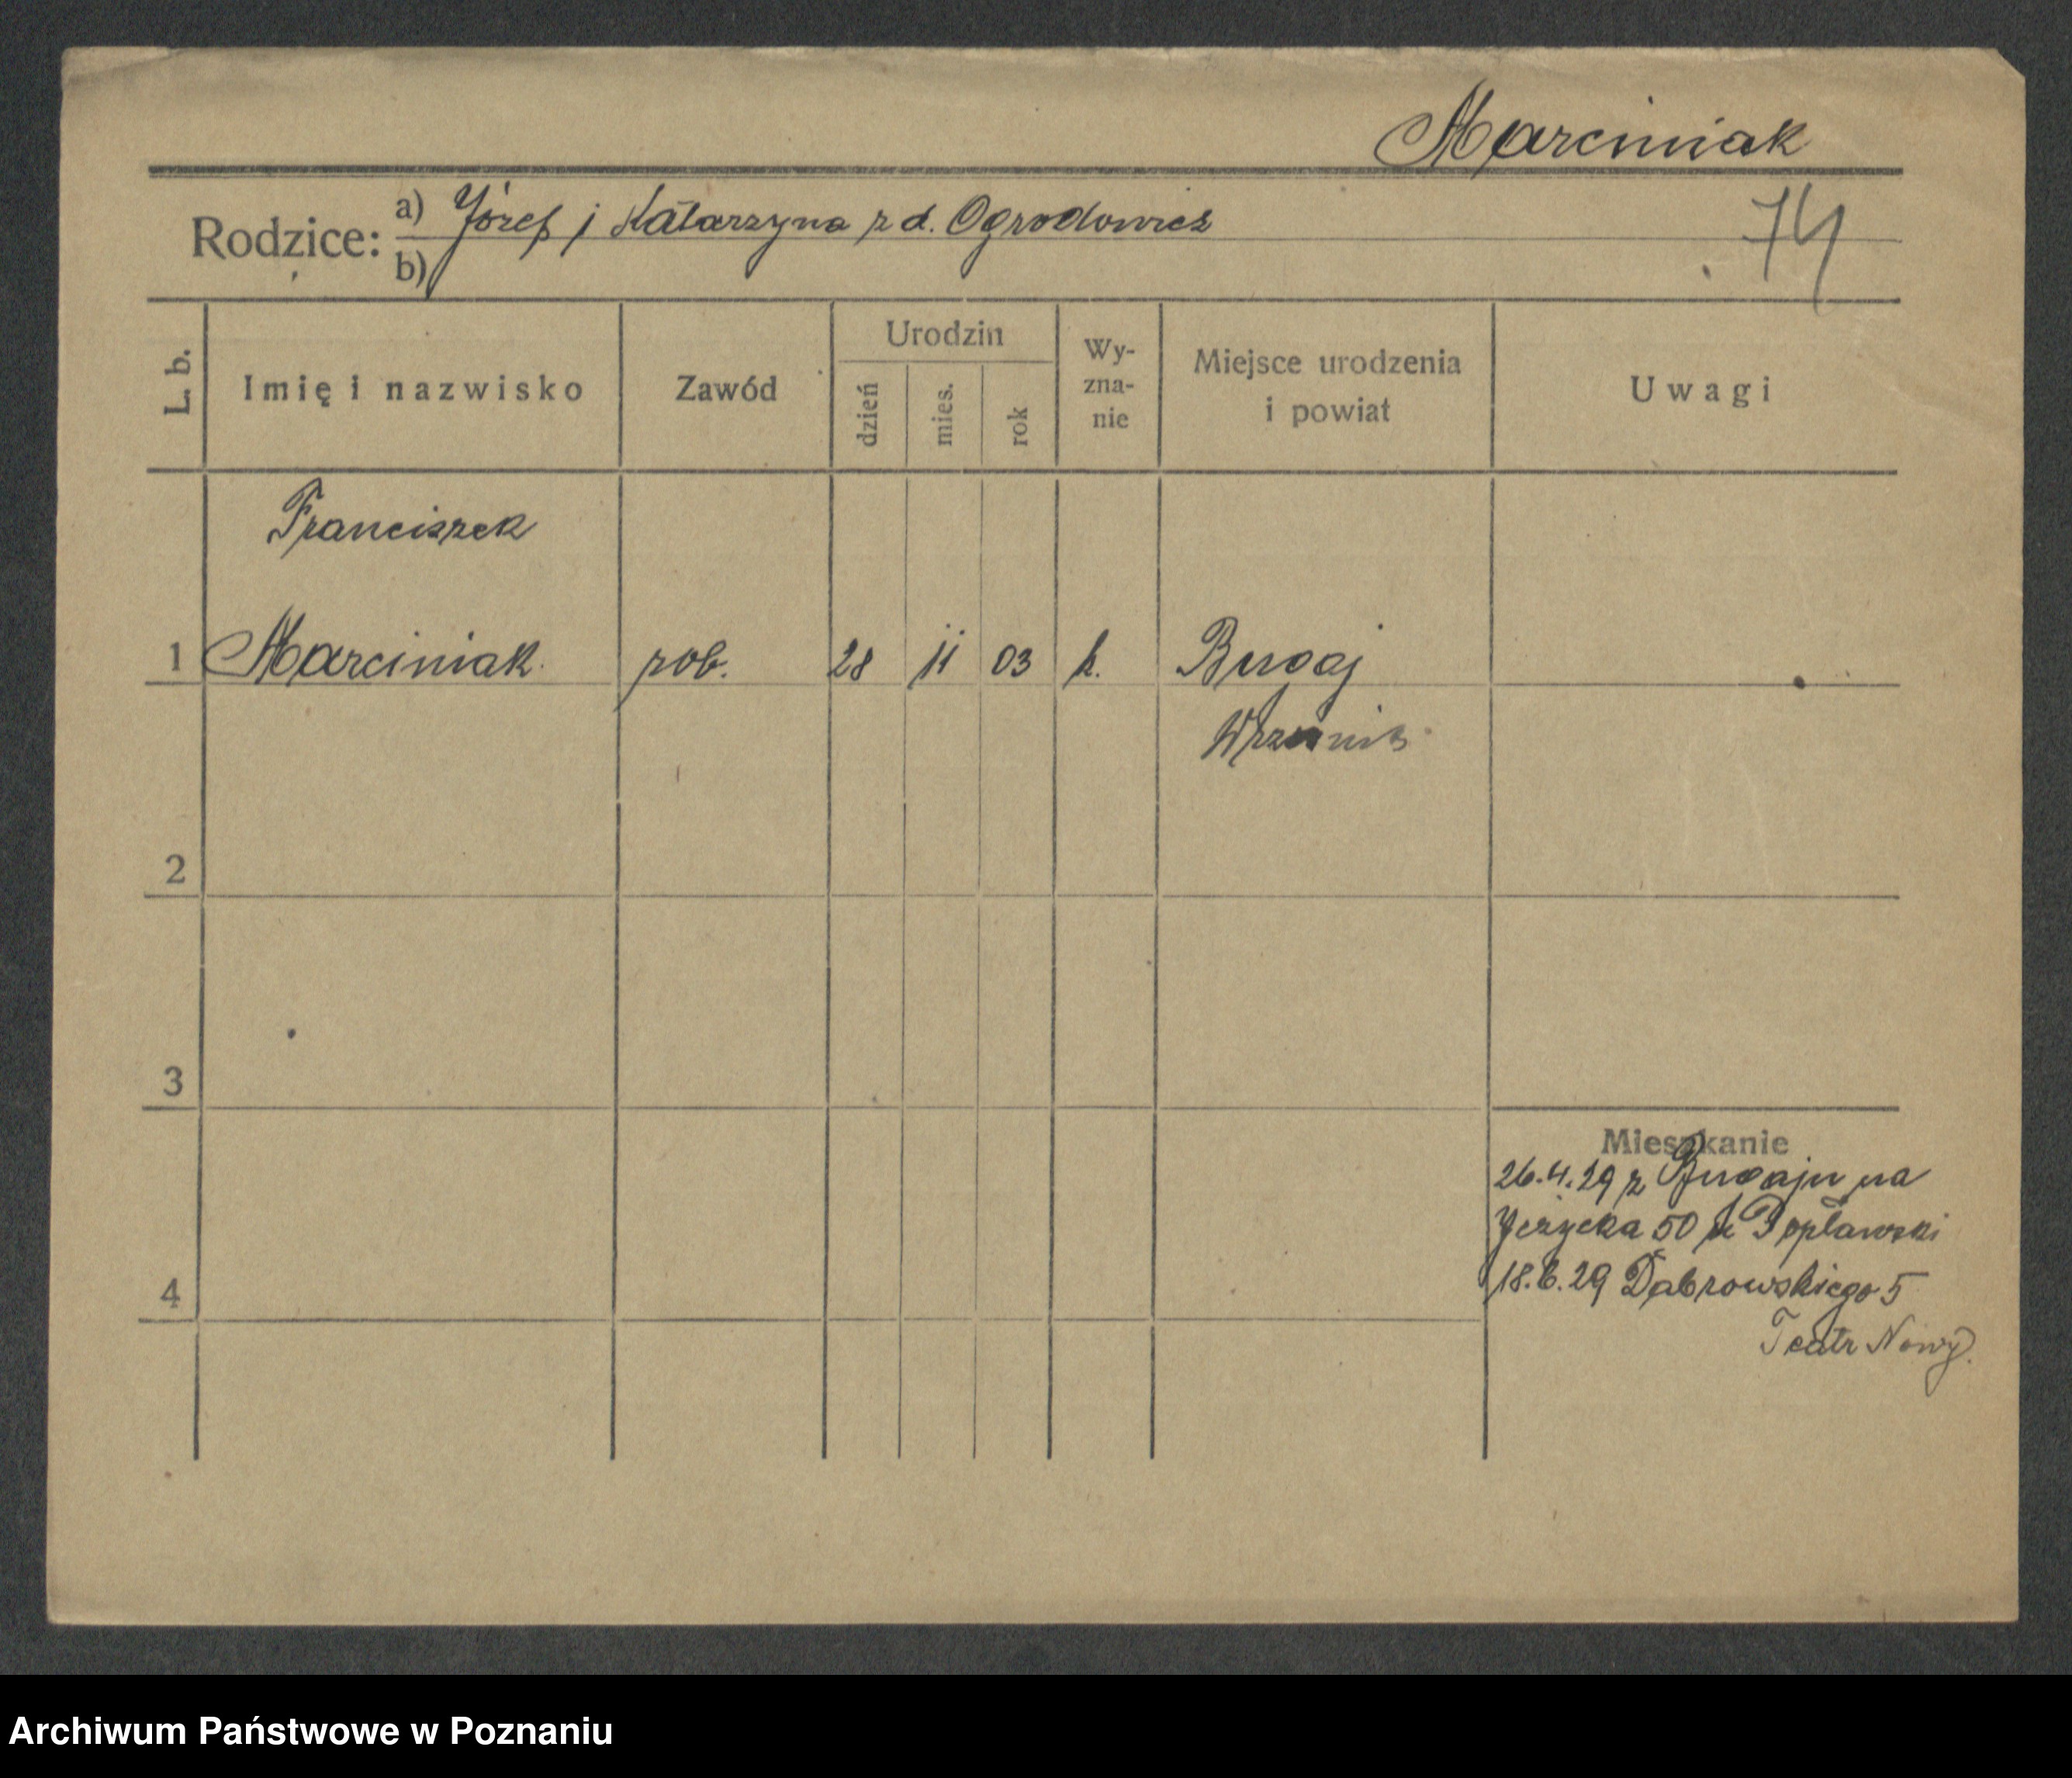 Marciniak
Rodzice: a) Józef i Katarzyna z d. Ogrodowicz
74
b)
L. b.
Imię i nazwisko
Zawód
Urodzin
dzień
mies.
rok
Wy-
zna-
nie
Miejsce urodzenia
i powiat
Uwagi
Franciszek
1 Marciniak rob. 28 11 03 k. Bugaj
Września
2
3
4
Mieszkanie
26.4.29 z Bugaju na
Jeżycka 50 u Popławski
18.6.29 Dąbrowskiego 5
Teatr Nowy.
Archiwum Państwowe w Poznaniu